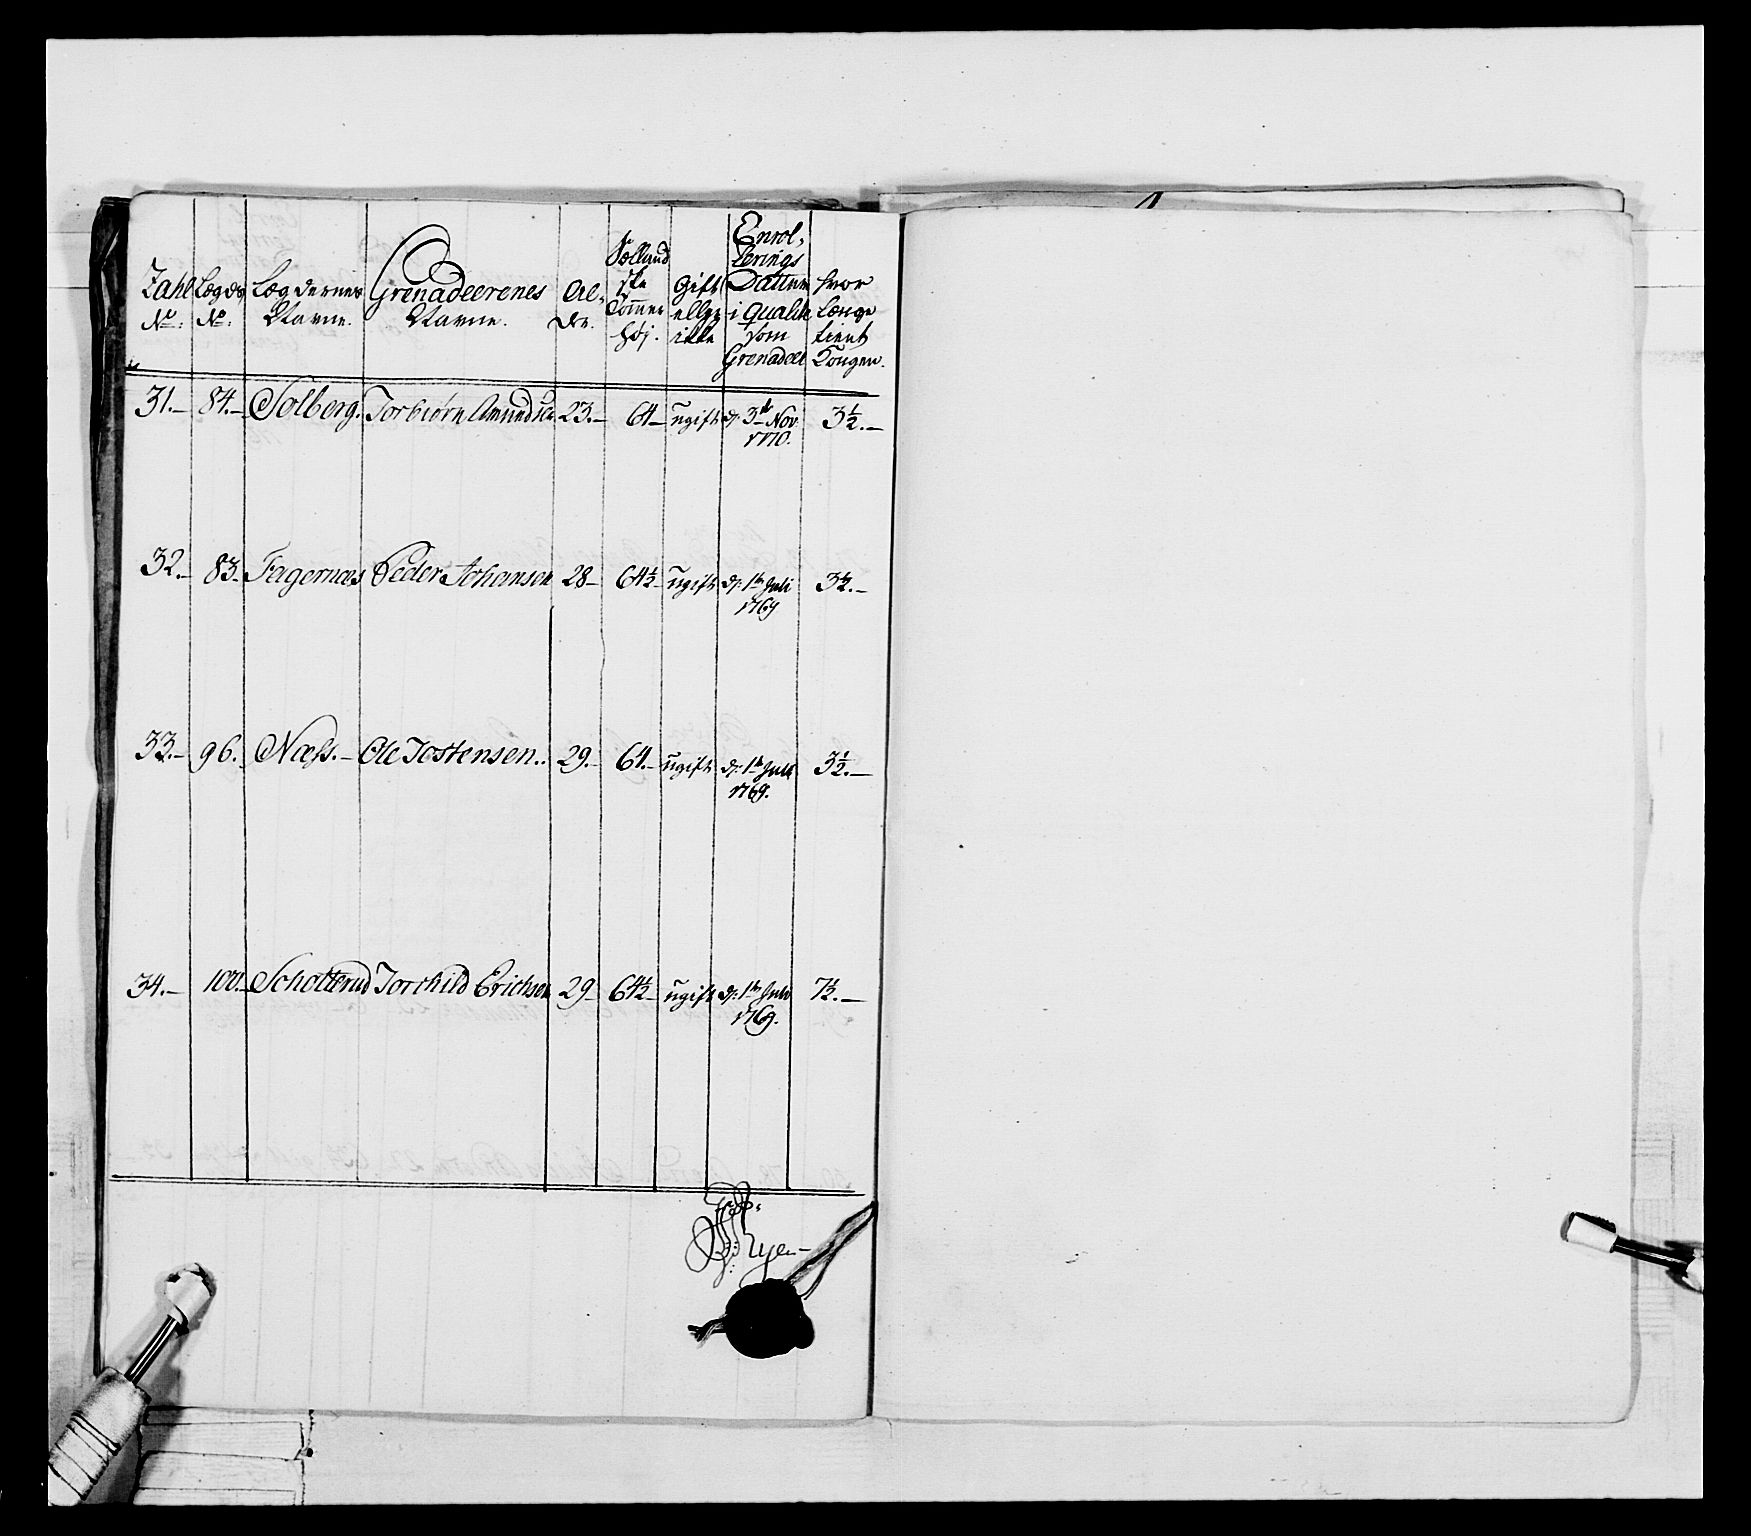 Zahl No: | Lægdes No: | Lægdernes Navne. | Grenadeerenes Navne. | Al-der. | Sællandske Tommer høj. | Gift eller ikke | Enrollerings Datum i Qualite som Grenadeer | hvor Længe tient Kongen.
31.- | 84.- | Solberg. | Torbiørn Amundsen | 23.- | 64- | ugift | d: 3de Nov 1770. | 3½.-
32.- | 83- | Fagernæs | Peder Johansen | 28- | 64½- | ugift | d: 1te Juli 1769 | 3½.-
33.- | 96.- | Næss.- | Ole Jostensen.. | 29.- | 64.- | ugift | d: 1te Juli 1769. | 3½.-
34.- | 100.- | Schotterud | Torchild Erichsen | 29- | 64½- | ugift | d: 1te Juli 1769. | 7½.-
Ryen-